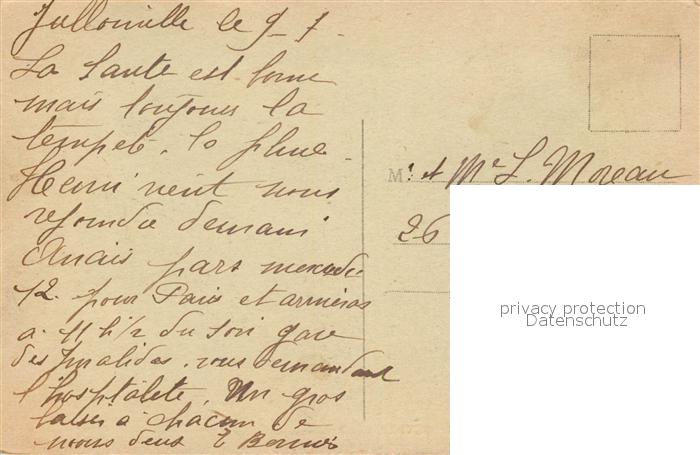 Jullouville le 9-7-
La Santé est bonne
mais toujours la
tempete, la pluie -
Henri vient nous
rejoindre demain
Anais pars mercredi
12. pour Paris et arriveras
a 11 h 1/2 du soir gare
des Invalides. vous demandant
l'hospitalete, Un gros
baiser à chacun de
nous deux
M. et Me L. Moreau
26
privacy protection
Datenschutz